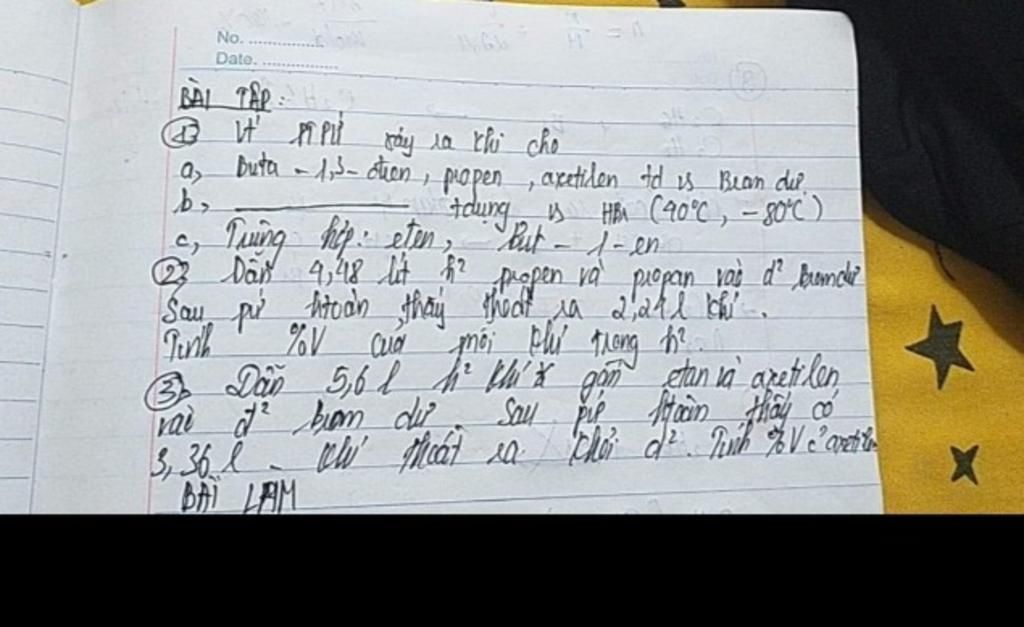 No. ................
Date. ................
BÀI TẬP:
① Vt PTPỨ xảy ra khi cho
a, Buta - 1,3- đien, propen, axetilen td vs Brom dư.
b, ———— tdụng vs HBr (40°C, -80°C)
c, Trùng hợp: eten, But - 1 - en
② Dẫn 4,48 lít h² propen và propan vào d² bromdư
Sau pứ htoàn, thấy thoát ra 2,24l khí.
Tính %V của mỗi khí trong h².
③ Dẫn 5,6l h² khí X gồm etan và axetilen
vào d² brom dư sau pứ htoàn thấy có
3,36l khí thoát ra khỏi d². Tính %V c² axetilen
BÀI LÀM